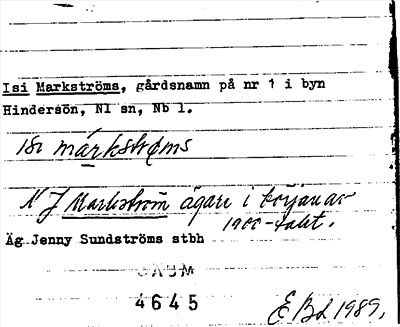 Isi Markströms, gårdsnamn på nr 1 i byn
Hindersön, Nl sn, Nb l.
ı̀sı márkstrøms
N J Markström ägare i början av
1900-talet.
Äg Jenny Sundströms stbh
DAUM
4645
E Bd 1989.